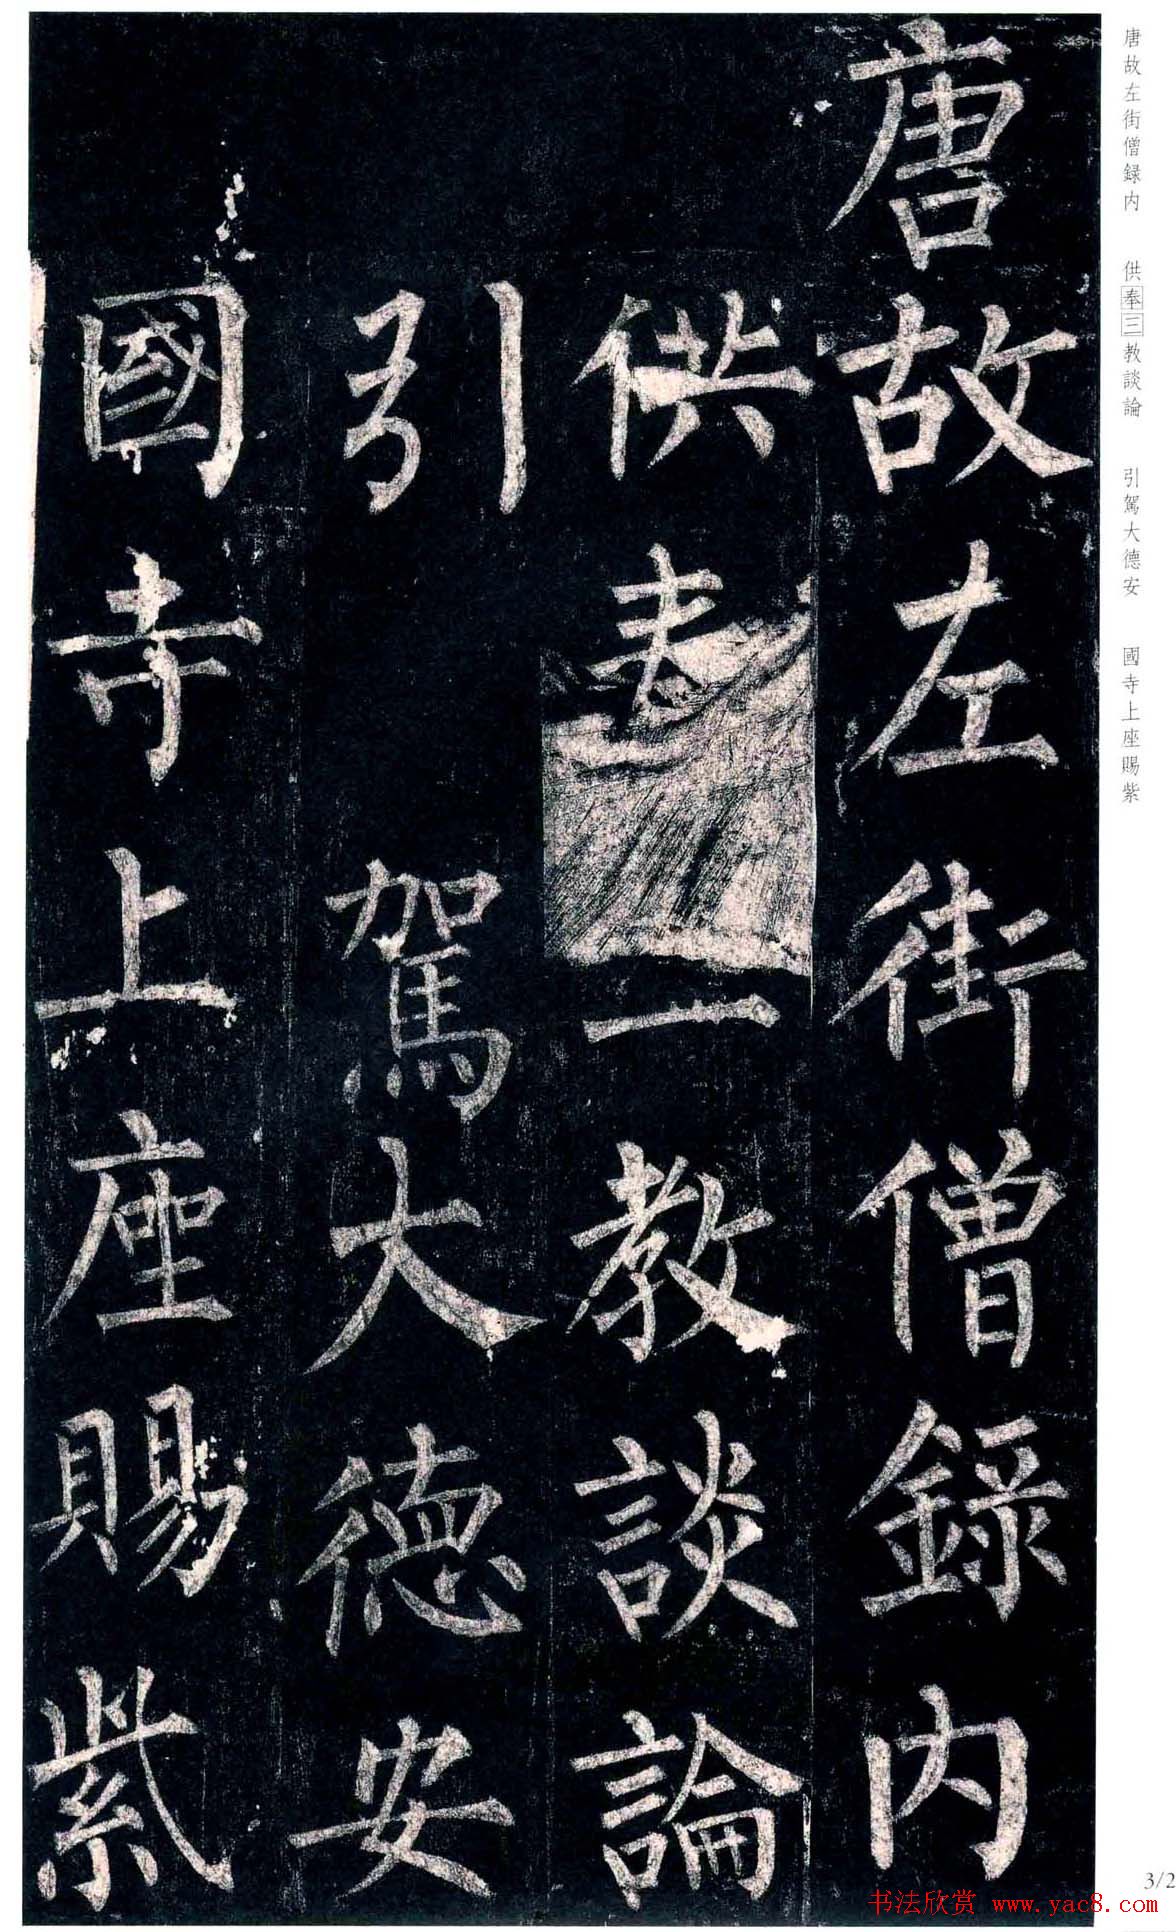 唐故左街僧録内
供奉三教談論
引駕大德安
國寺上座賜紫
唐故左街僧録内 供奉三教談論 引駕大德安 國寺上座賜紫
3/2
书法欣赏 www.yac8.com